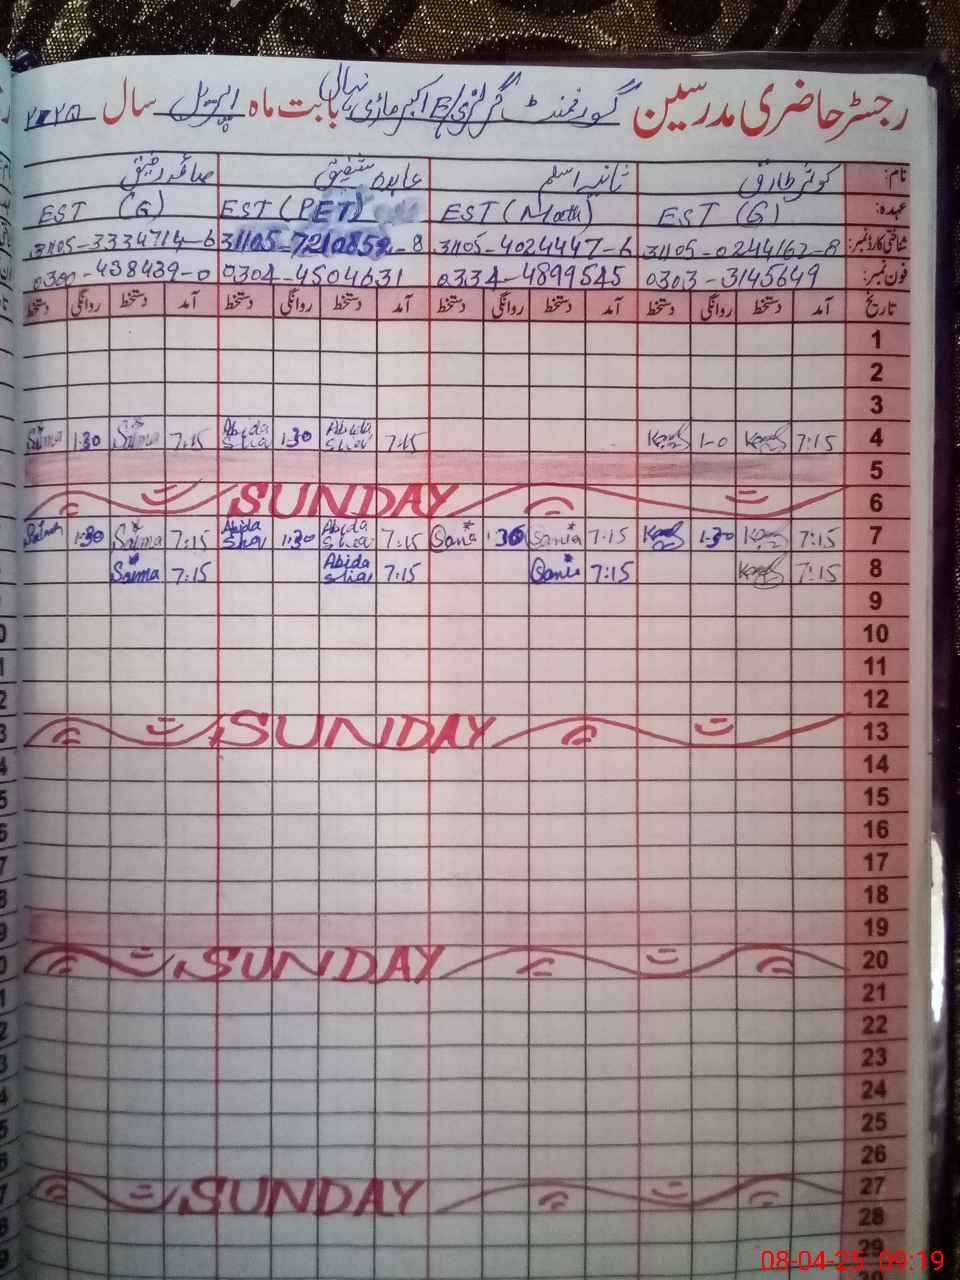 رجسٹر حاضری مدرسین گورنمنٹ گرلز E/S اکبر ماڑی نہالی بابت ماہ اپریل سال ۲۰۲۵
نام: کوثر طارق ثانیہ اسلم عابدہ شفیق صائمہ رفیق
عہدہ: EST (G) EST (Math) EST (PET) EST (G)
شناختی کارڈ نمبر: 31105-0244162-8 31105-4024447-6 31105-7210859-8 31105-3334714-6
فون نمبر: 0303-3145649 0334-4899545 0304-4504631 0300-438439-0
تاریخ آمد دستخط روانگی دستخط آمد دستخط روانگی دستخط آمد دستخط روانگی دستخط آمد دستخط روانگی دستخط
1
2
3
4 7:15 1-0 7:15 Abida 1:30 Abida 7:15 Saima 1:30 Saima
5
6 SUNDAY
7 7:15 1:30 7:15 Sania 1:30 Sania 7:15 Abida 1:30 Abida 7:15 Saima 1:30 Saima
8 7:15 7:15 Sania 7:15 Abida 7:15 Saima
9
10
11
12
13 SUNDAY
14
15
16
17
18
19
20 SUNDAY
21
22
23
24
25
26
27 SUNDAY
28
29
08-04-25 09:19